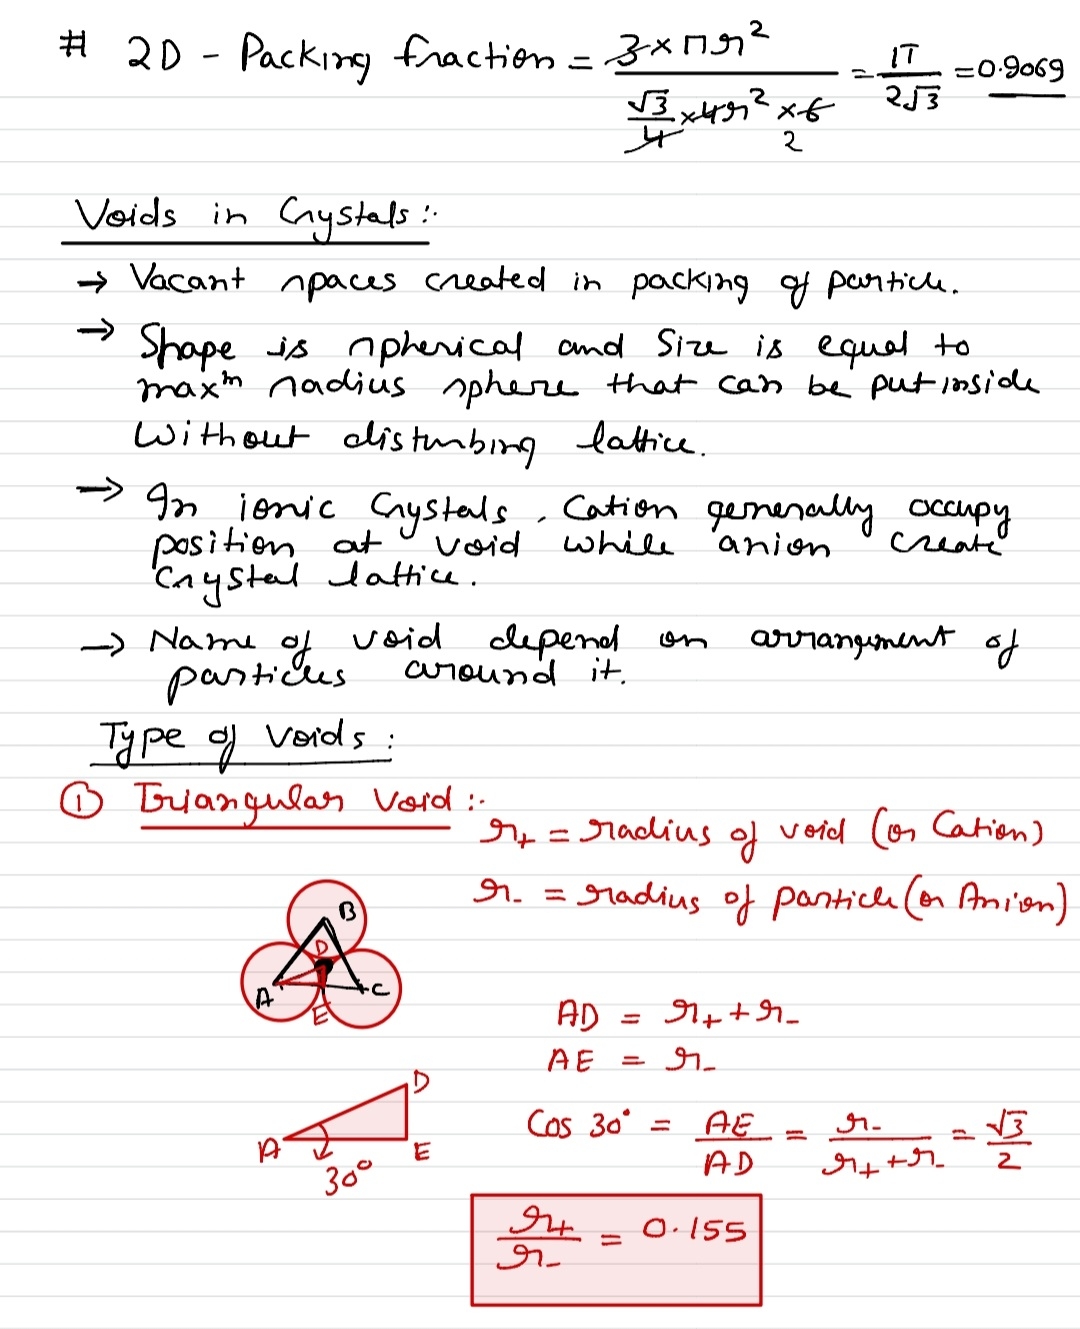 # 2D - Packing fraction = 3 × πr² / (√3/4 × 4r² × 6 2) = π / 2√3 = 0.9069
Voids in Crystals :-
→ Vacant spaces created in packing of particle.
→ Shape is spherical and Size is equal to
maxᵐ radius sphere that can be put inside
without disturbing lattice.
→ In ionic Crystals, Cation generally occupy
position at void while anion create
Crystal lattice.
→ Name of void depend on arrangement of
particles around it.
Type of Voids :
① Triangular Void :-
r₊ = radius of void (or Cation)
r₋ = radius of particle (or Anion)
B
D
A
C
E
AD = r₊ + r₋
AE = r₋
D
Cos 30° = AE / AD = r₋ / (r₊ + r₋) = √3 / 2
A
E
30°
r₊ / r₋ = 0.155